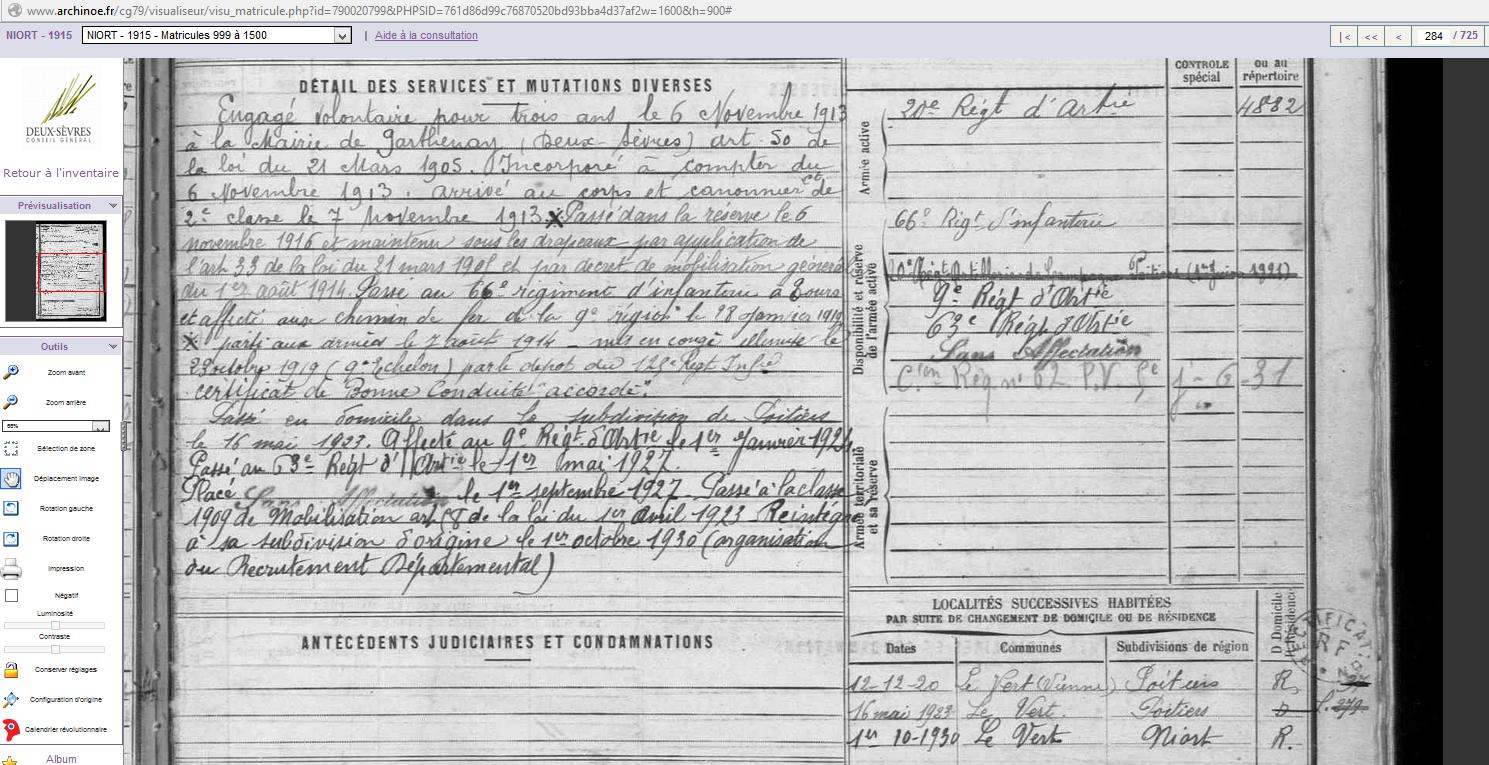 www.archinoe.fr/cg79/visualiseur/visu_matricule.php?id=790020799&PHPSID=761d86d99c76870520bd93bba4d37af2w=1600&h=900#
NIORT - 1915
NIORT - 1915 - Matricules 999 à 1500
| Aide à la consultation
|< << < 284 / 725
DEUX-SÈVRES
CONSEIL GÉNÉRAL
Retour à l'inventaire
Prévisualisation
Outils
Zoom avant
Zoom arrière
66%
Sélection de zone
Déplacement image
Rotation gauche
Rotation droite
Impression
Négatif
Luminosité
Contraste
Conserver réglages
Configuration d'origine
Calendrier révolutionnaire
Album
DÉTAIL DES SERVICES ET MUTATIONS DIVERSES
Engagé volontaire pour trois ans le 6 Novembre 1913
à la Mairie de Parthenay (Deux Sèvres) art. 50 de
la loi du 21 Mars 1905. Incorporé à compter du
6 Novembre 1913. arrivé au corps et canonnier de
2e classe le 7 Novembre 1913. X Passé dans la réserve le 6
novembre 1916 et maintenu sous les drapeaux par application de
l'art 33 de la loi du 21 mars 1905 et par décret de mobilisation général
du 1er août 1914. Passé au 66e régiment d'infanterie à Tours
et affecté aux chemin de fer de la 9e région le 28 Janvier 1919
X parti aux armées le 7 août 1914 - mis en congé illimité le
23 octobre 1919 (9e Echelon) par le dépot du 125e Regt Infie
certificat de Bonne Conduite "accordé".
Passé en domicile dans la subdivision de Poitiers
le 16 mai 1923. Affecté au 9e Régt d'Artie le 1er Janvier 1924
Passé au 63e Régt d'Artie le 1er mai 1927.
Placé Sans Affectation le 1er septembre 1927. Passé à la classe
1909 de Mobilisation art 58 de la loi du 1er avril 1923. Réintégré
à sa subdivision d'origine le 1er octobre 1930 (organisation
du Recrutement Départemental)
ANTÉCÉDENTS JUDICIAIRES ET CONDAMNATIONS
CONTRÔLE
spécial
ou au
répertoire
Armée active
20e Régt d'Artie
4882
Disponibilité et réserve
de l'armée active
66e Régt d'infanterie
9e Régt d'Artie
63e Régt d'Artie
Sans Affectation
Armée territoriale
et sa réserve
LOCALITÉS SUCCESSIVES HABITÉES
PAR SUITE DE CHANGEMENT DE DOMICILE OU DE RÉSIDENCE
D Domicile
R Résidence
Dates Communes Subdivisions de région
12-12-20 Le Vert (Vienne) Poitiers R.
16 mai 1923 Le Vert. Poitiers D
1er 10-1930 Le Vert Niort R.